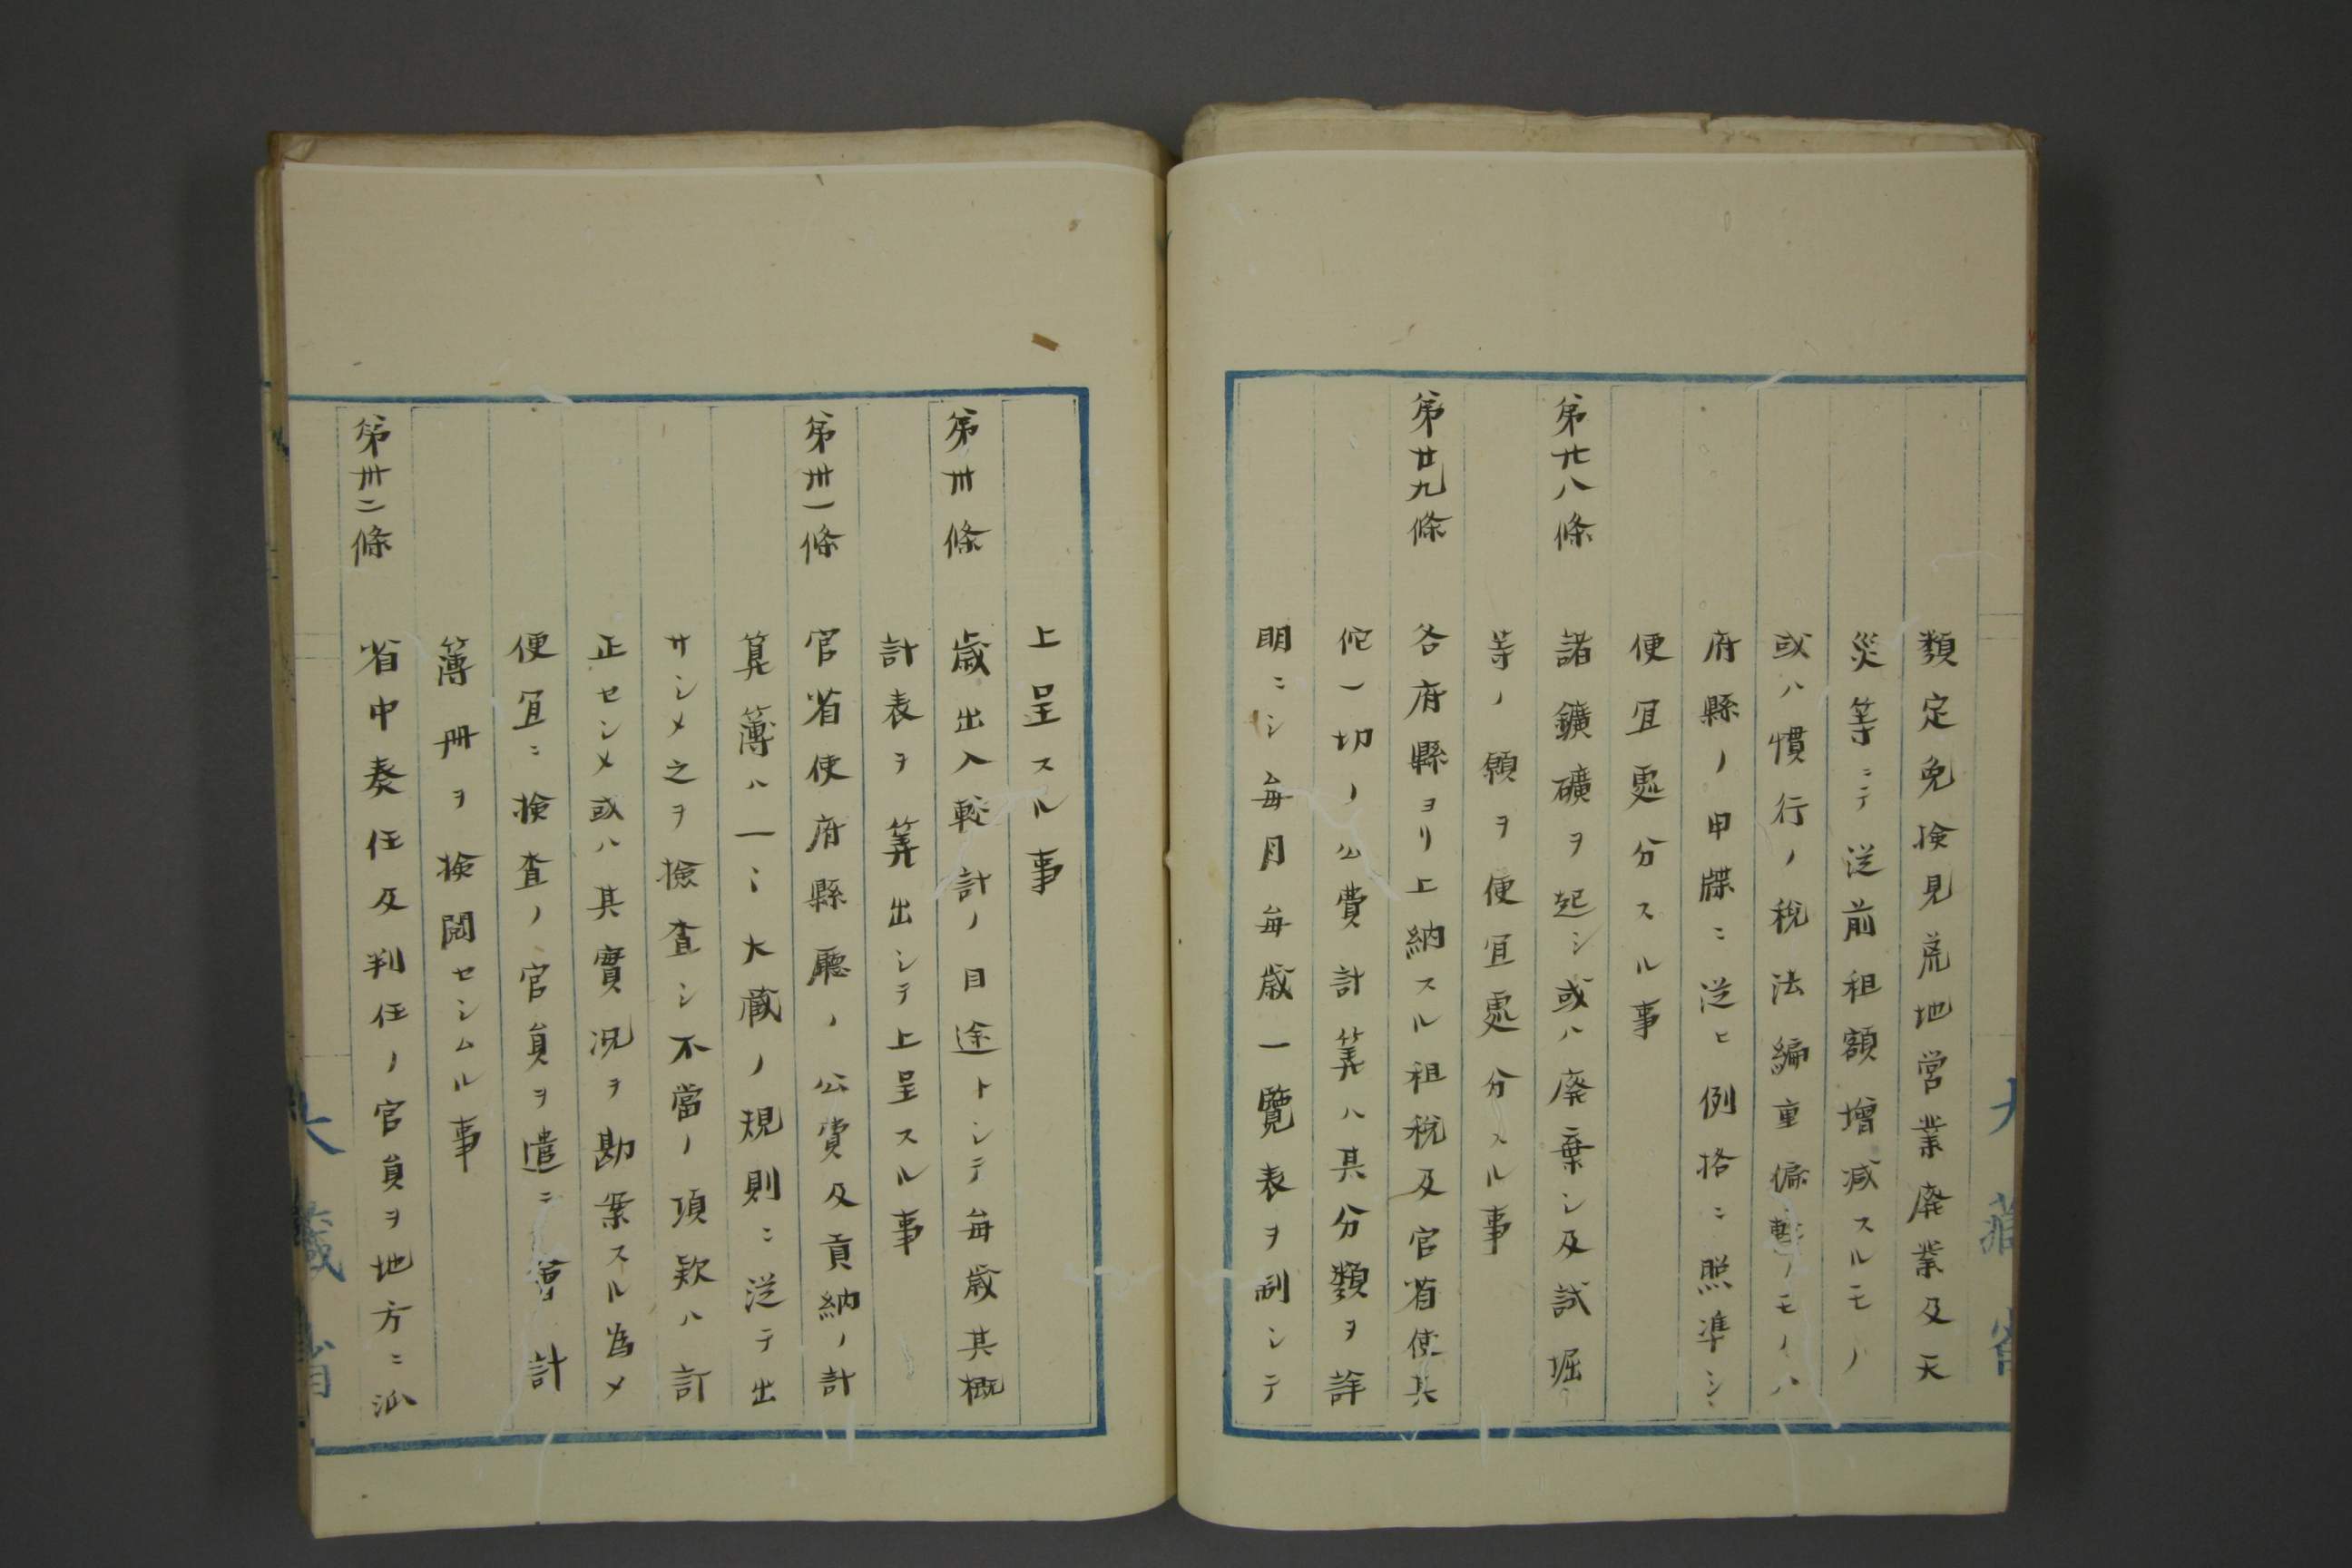 類定免検見荒地営業廃業及天
災等ニテ從前租額増減スルモノ
或ハ慣行ノ税法編重偏軽ノモノハ
府縣ノ申牒ニ從ヒ例格ニ照準シ
便宜處分スル事
第廿八條 諸鑛礦ヲ起シ或ハ廃棄シ及試堀
等ノ願ヲ便宜處分スル事
第廿九條 各府縣ヨリ上納スル租税及官省使其
佗一切ノ公費計筭ハ其分類ヲ詳
明ニシ毎月毎歳一覧表ヲ制シテ
上呈スル事
第卅條 歳出入較計ノ目途トシテ毎歳其概
計表ヲ筭出シテ上呈スル事
第卅一條 官省使府縣廳ノ公費及貢納ノ計
算簿ハ一〻大蔵ノ規則ニ從テ出
サシメ之ヲ檢査シ不當ノ項欵ハ訂
正セシメ或ハ其實況ヲ勘案スル為メ
便宜ニ検査ノ官員ヲ遣ニ會計
簿冊ヲ検閲セシムル事
第卅二條 省中奏任及判任ノ官員ヲ地方ニ派
大藏省